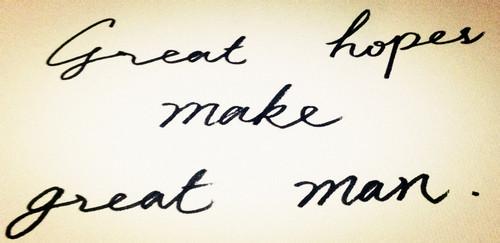 Great hopes
make
great man.